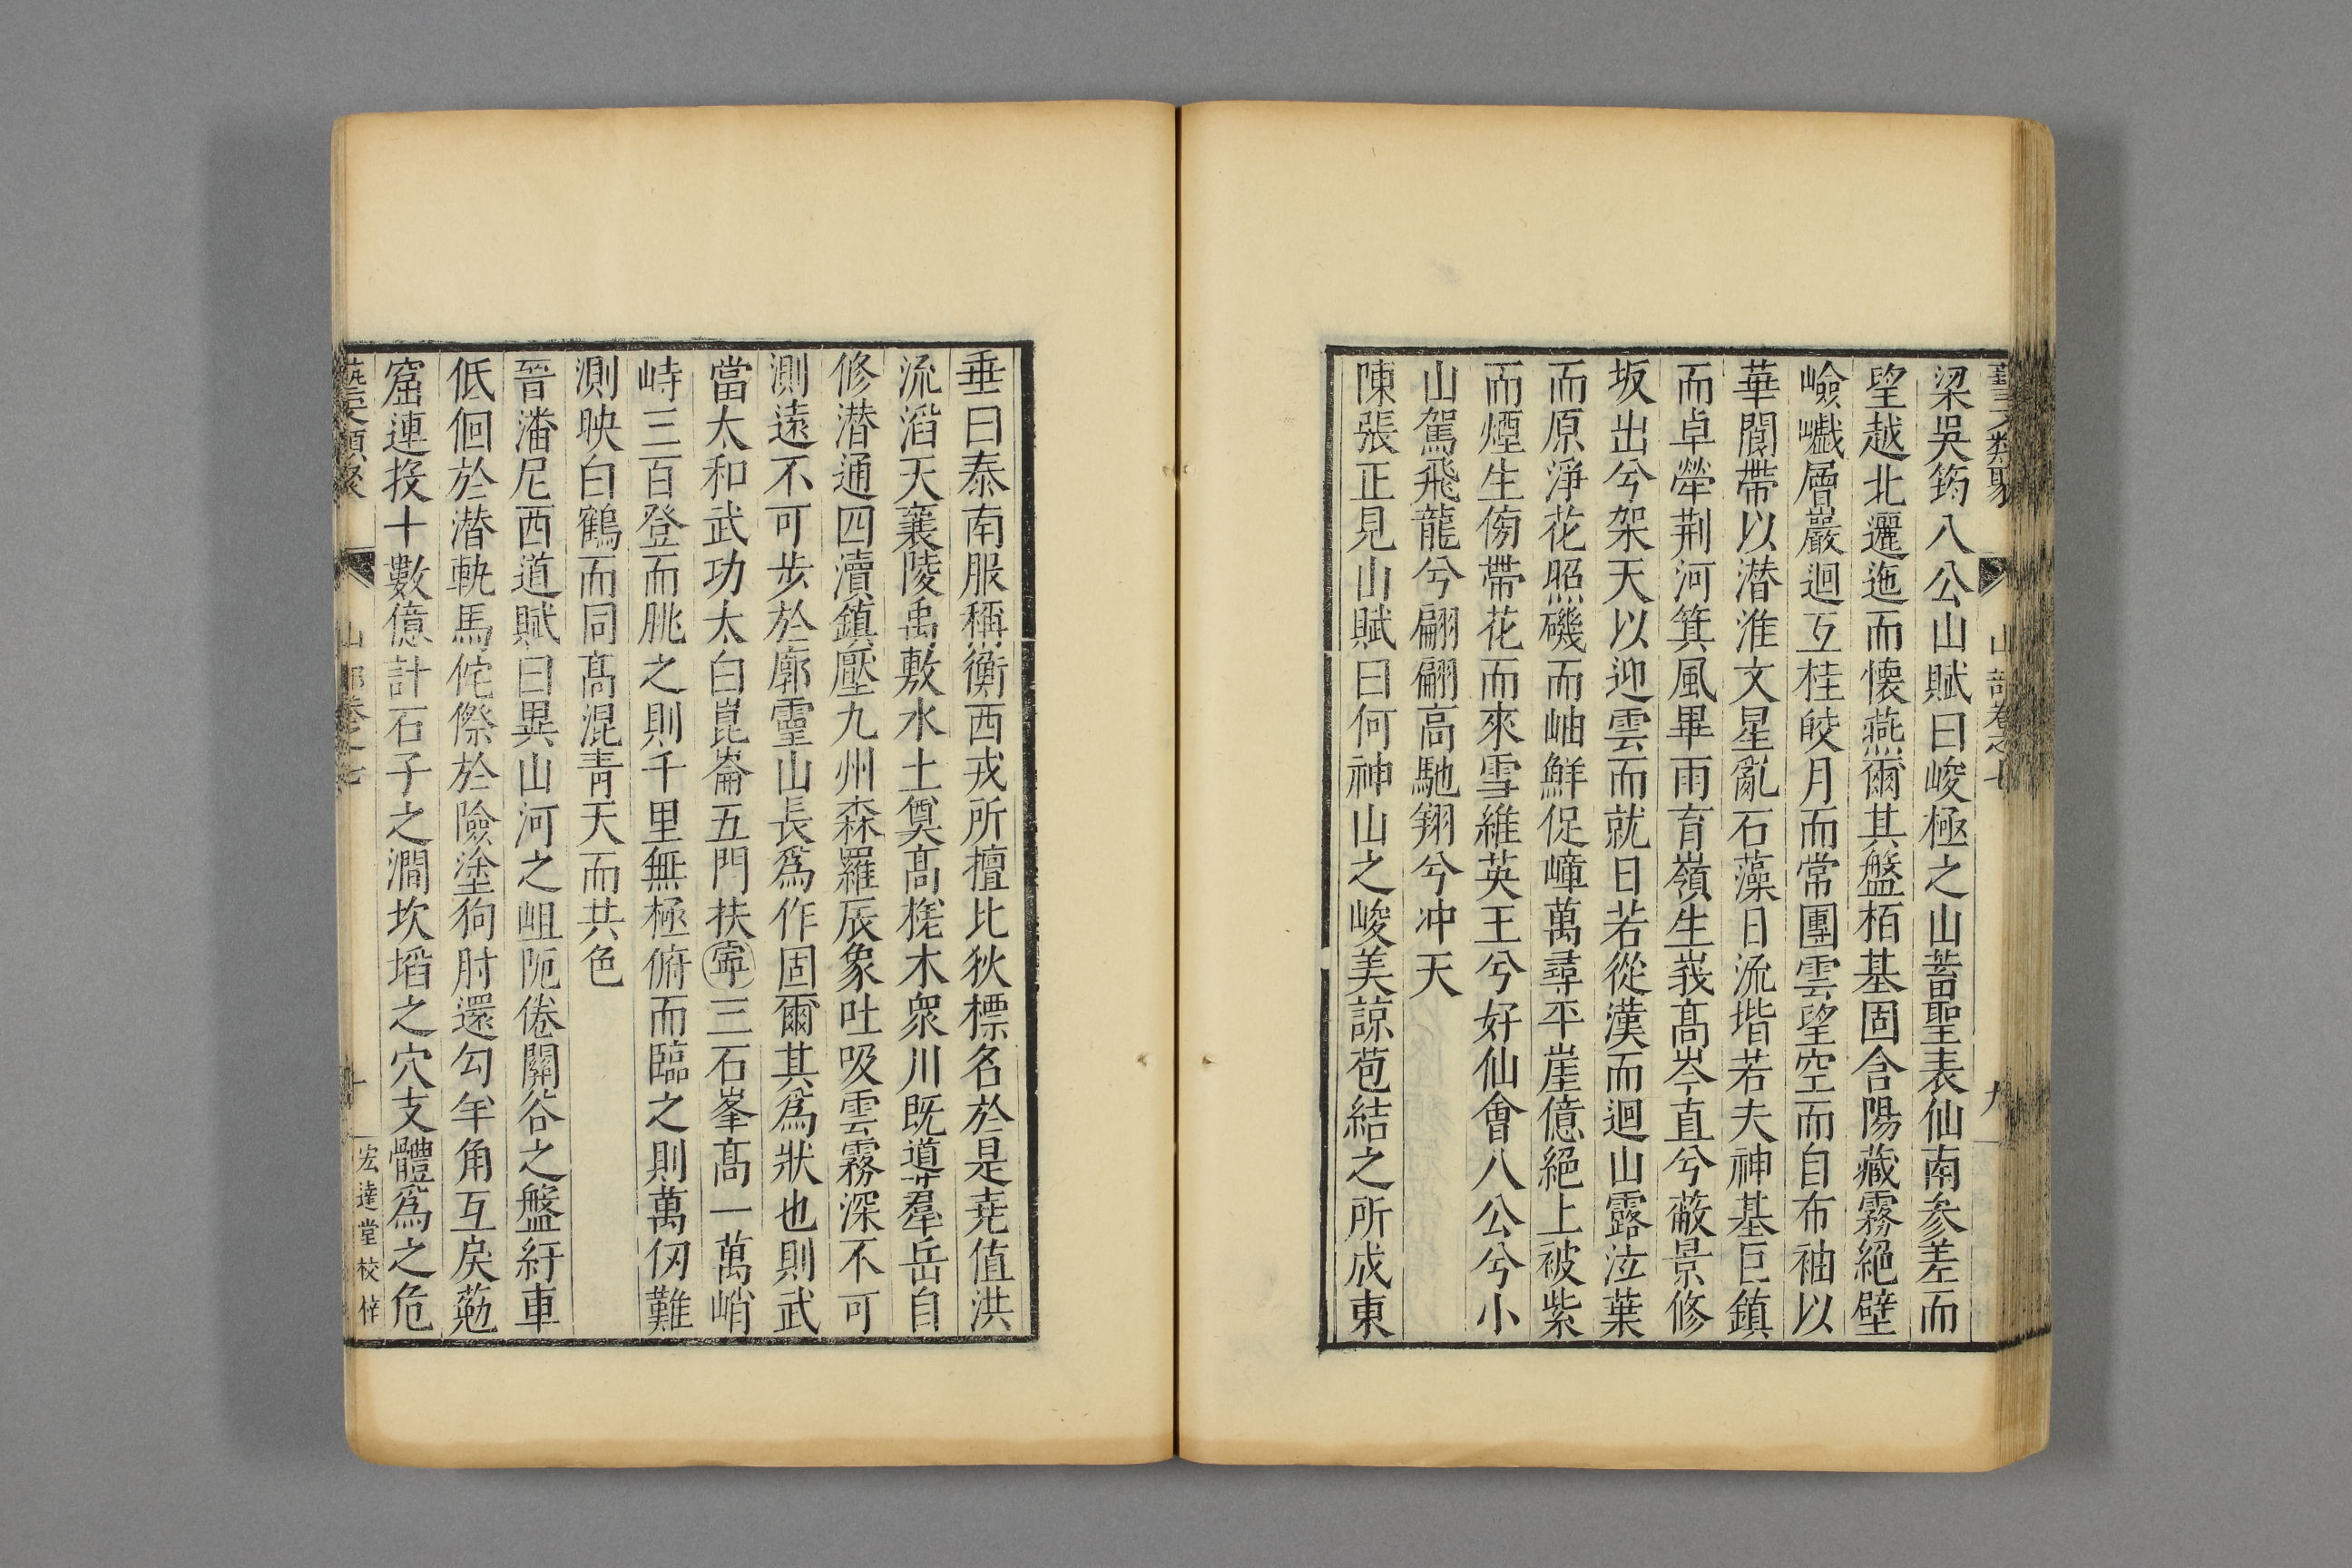 梁吳筠八公山賦曰峻極之山蓄聖表仙南參差而
望越北邐迤而懷燕爾其盤栢基固含陽藏霧絕壁
嶮巇層巖迴互桂皎月而常團雲望空而自布袖以
華閬帶以潜淮文星亂石藻日流堦若夫神基巨鎮
而卓犖荆河箕風畢雨育嶺生峩髙岑直兮蔽景修
坂出兮架天以迎雲而就日若從漢而迴山露泣葉
而原淨花照磯而岫鮮促嶂萬尋平崖億絕上被紫
而煙生傍帶花而來雪維英王兮好仙會八公兮小
山駕飛龍兮翩翩高馳翔兮冲天
陳張正見山賦曰何神山之峻美諒苞結之所成東
垂曰泰南服稱衡西戎所擅比狄標名於是尭值洪
流滔天襄陵禹敷水土奠髙栞木衆川既導羣岳自
修潜通四瀆鎮壓九州森羅辰象吐吸雲霧深不可
測遠不可步於廓靈山長爲作固爾其爲狀也則武
當太和武功太白崑崙五門扶寧三石峯髙一萬峭
峙三百登而脁之則千里無極俯而臨之則萬仞難
測映白鶴而同髙混青天而共色
晉潘尼西道賦曰異山河之岨阨倦關谷之盤紆車
低佪於潜軌馬侘傺於險塗狗肘還勾羊角互戾䓻
窟連投十數億計石子之澗坎埳之穴支體爲之危
藝文類聚
山部卷之七
九
藝文類聚
山部卷之七
十
宏達堂校梓